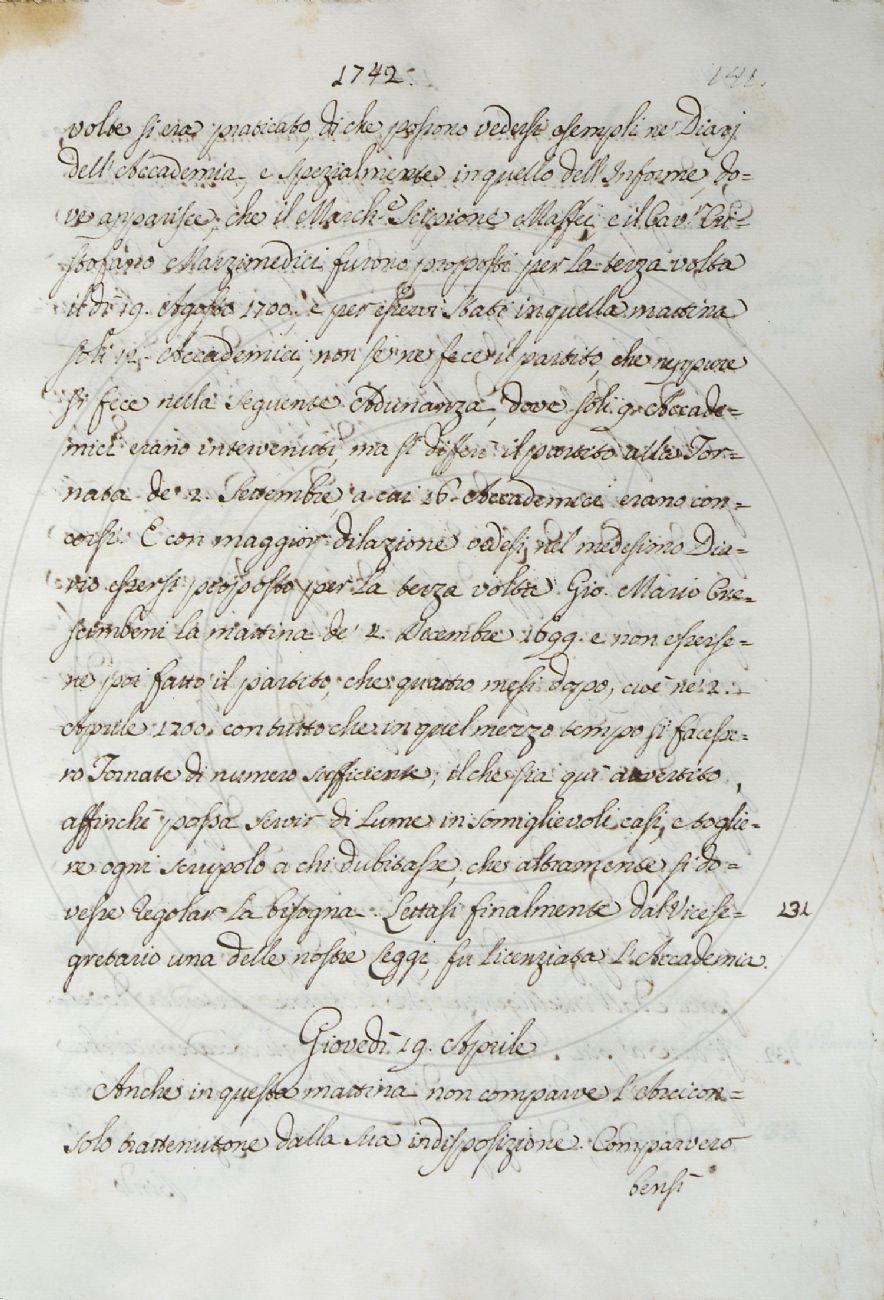 1742.
141.
volte si era praticato, di che possono vedersi esempli ne' Diarj
dell'Accademia, e spezialmente in quello dell'Informe, do=
ve apparisce, che il March.e Scipione Maffei, e il Cav.r Cri=
stofano Marzimedici furono proposti per la terza volta
il dì 19. Agosto 1700. e per esservi stati in quella mattina
soli 12. Accademici, non se ne fece il partito, che neppure
si fece nella seguente Adunanza, dove soli 9. Accade=
mici erano intervenuti, ma si differì il partito alla Tor=
nata de' 2. Settembre a cui 16. Accademici erano con=
corsi. E con maggior dilazione vedesi nel medesimo Dia=
rio essersi proposto per la terza volta Gio. Mario Cre=
scimbeni la mattina de' 4. Decembre 1699. e non esserse=
ne poi fatto il partito, che quattro mesi dopo, cioè ne' 2.
Aprile 1700. con tutto che in quel mezzo tempo si facesse=
ro Tornate di numero sufficiente; il che sia qui avvertito,
affinchè possa servir di lume in somiglievoli casi, e toglie=
re ogni scrupolo a chi dubitasse, che altramente si do=
vesse regolar la bisogna. Lettasi finalmente dal Vicese=
131
gretario una delle nostre Leggi, fu licenziata l'Accademia.
Giovedì 19. Aprile
Anche in questa mattina non comparve l'Arcicon=
solo trattenutone dalla sua indisposizione. Comparvero
bensì